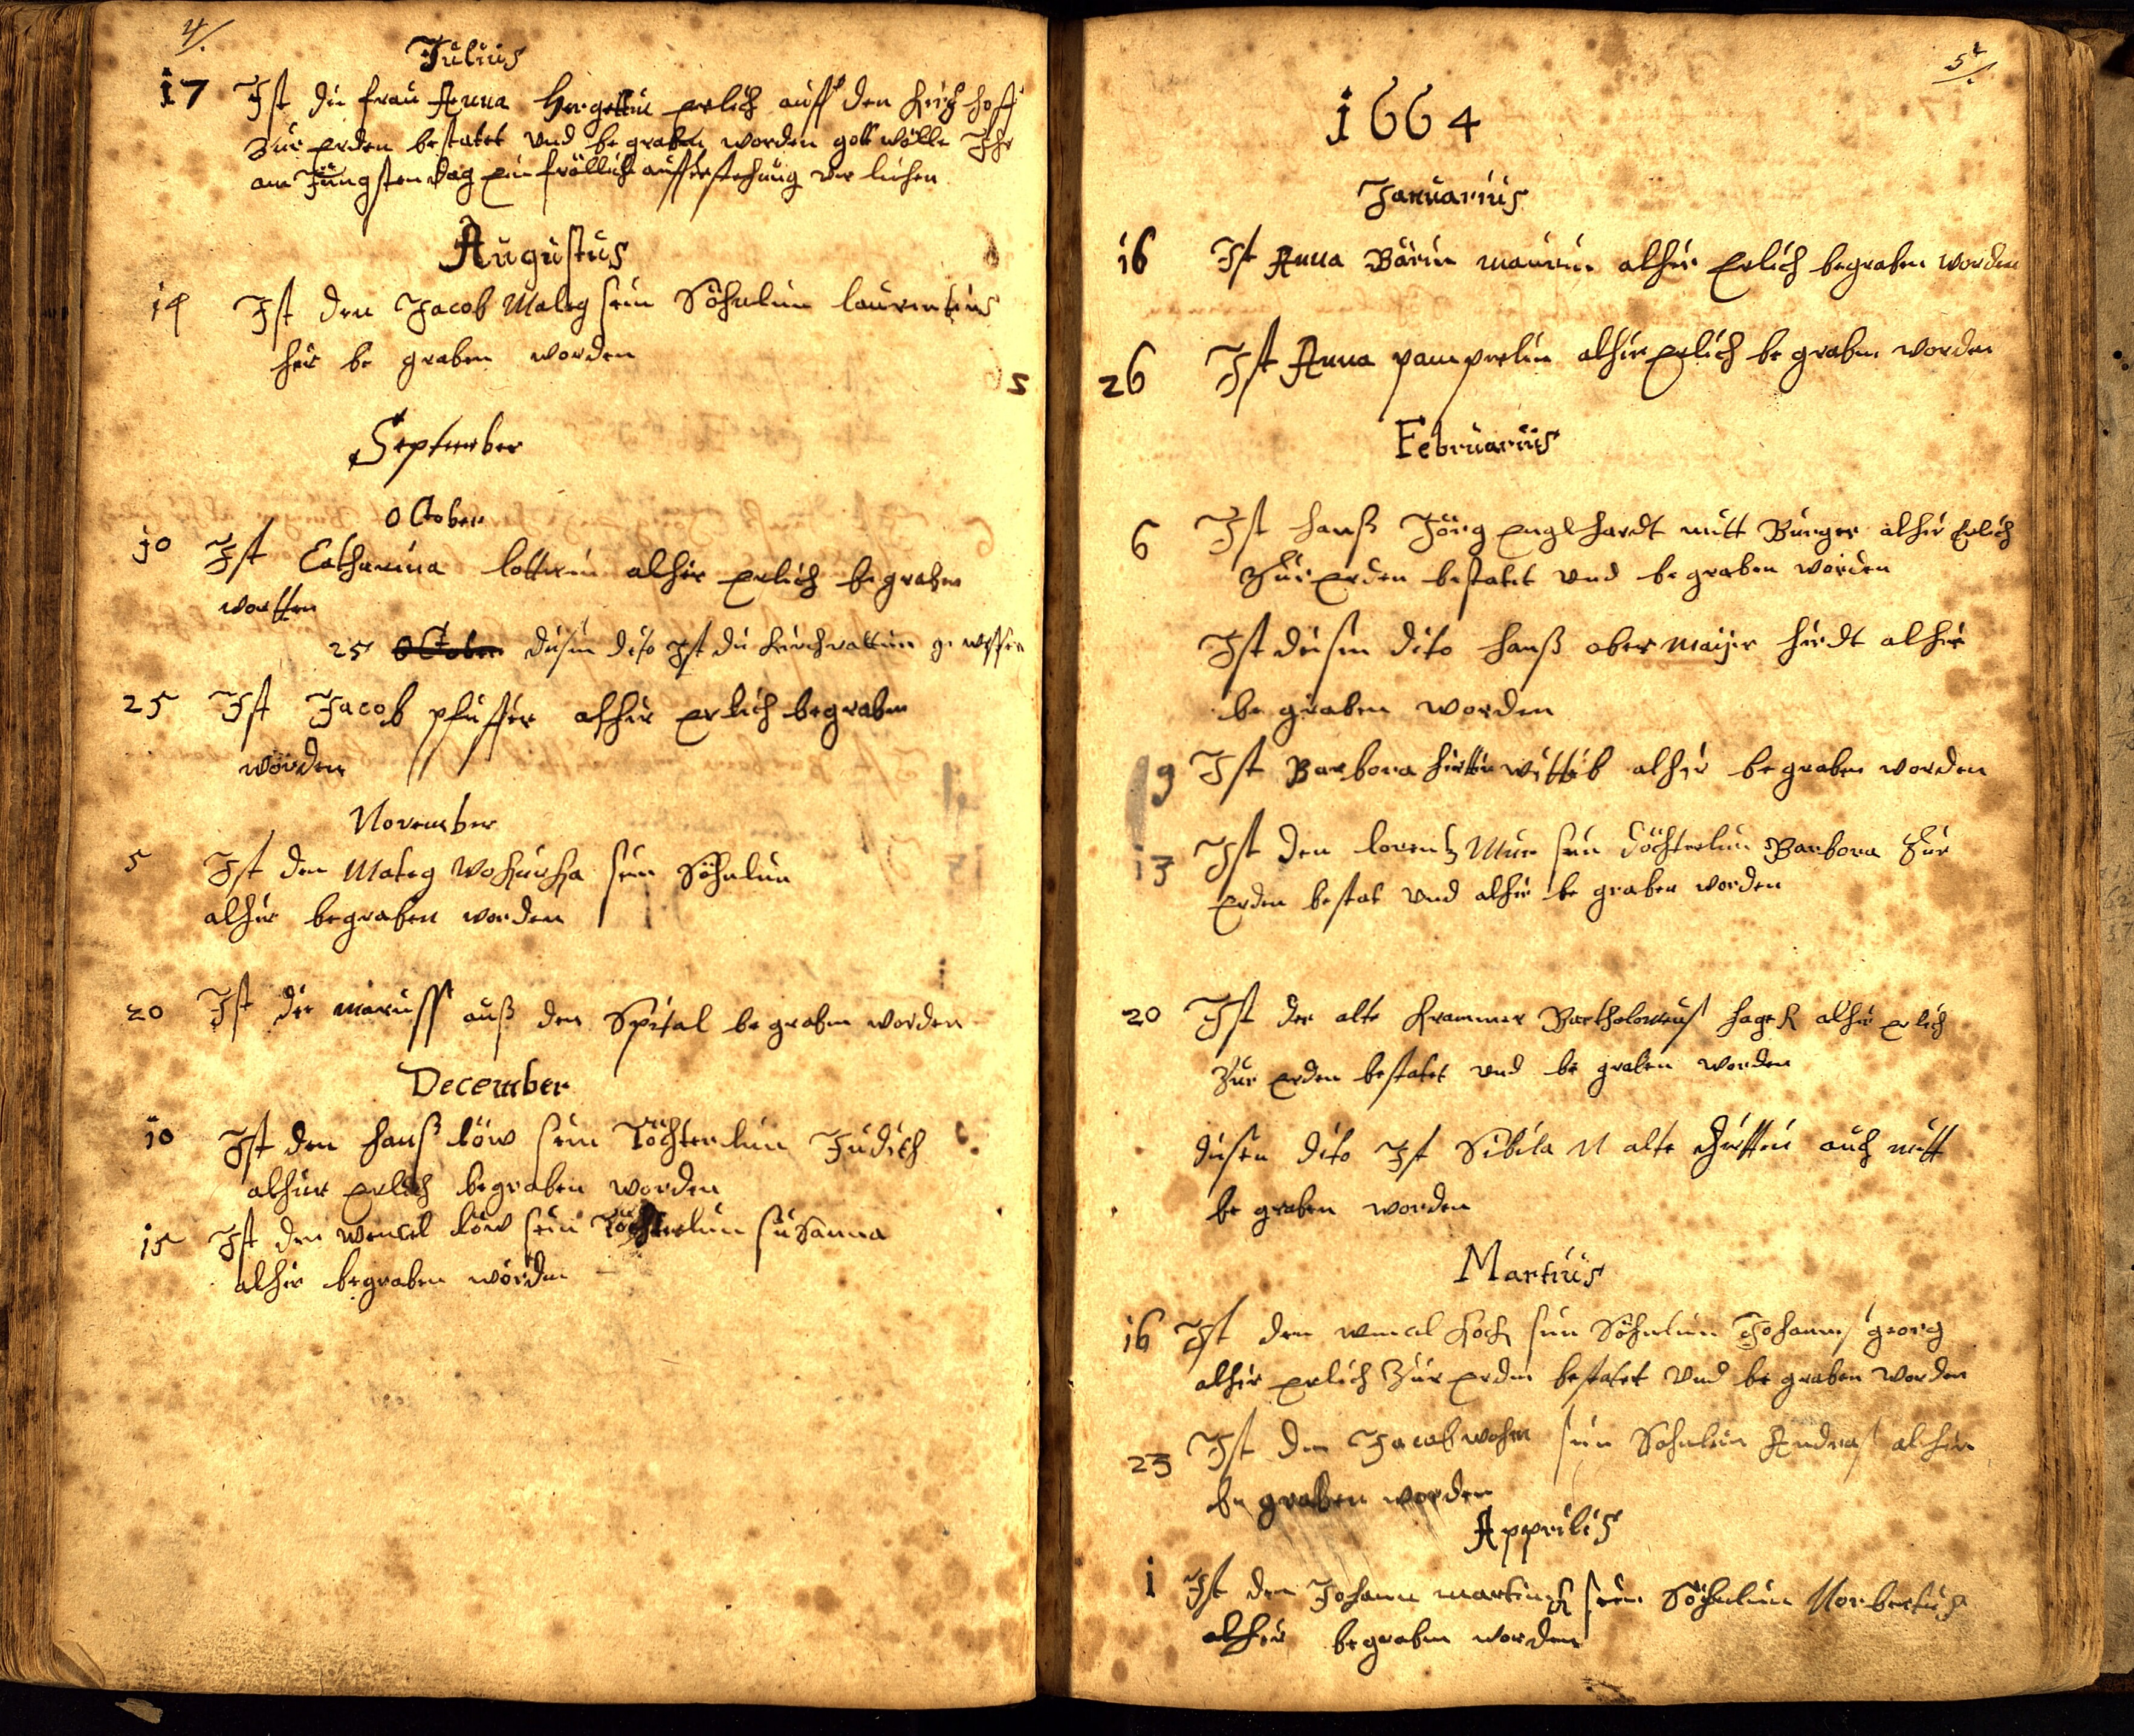 4/.
Julius
17 Ist die frau Anna erlich auff den kirchhoff
Zur erden bestatet und be graben worden gott wölle Ihr
am Jüngsten dag ein frölliche aufferstehung ver leihen
Augustus
14 Ist den Jacob Mateg sein Söhnlein laurentius
hir be graben worden
September
October
10 Ist Catharina alhir erlich be graben
wortten
25 October diesen dito Ist die
25 Ist Jacob alhir erlich begraben
worden
November
5 Ist den Mateg sein Söhnlein
alhir begraben worden
20 Ist die maruss auß den Spital be graben worden
December
10 Ist den hanß löw sein Töchterlein Judith
alhier erlich begraben worden
15 Ist den wencel löw sein Töchterlein suSanna
alhir begraben worden
5/.
1664
Januarius
16 Ist Anna Bärin alhir Erlich begraben worden
26 Ist Anna alhir erlich be graben worden
Februarius
6 Ist hanß Jörg englhardt mitt Burger alhir Erlich
Zur erden bestatet und be graben worden
Ist diesen dito hanß obermaijer hirdt alhir
be graben worden
9 Ist Barbora wittib alhir begraben worden
13 Ist den lorentz sein döchterlein Barbora Zur
erden bestat und alhir be graben worden
20 Ist der alte krammer Bartholomeus hagek alhir erlich
Zur erden bestatet und be graben worden
diesen dito Ist Sibila N alte auch mitt
be graben worden
Martius
16 Ist den wencel koch sein Söhnlein Johannes georg
alhir erlich Zur erden bestatet und be graben worden
23 Ist den Jacob sein Sohnlein Andreas alhir
be graben worden
Apprilis
1 Ist den Johann martinek sein Söhnlein Norbertus
alhir begraben worden